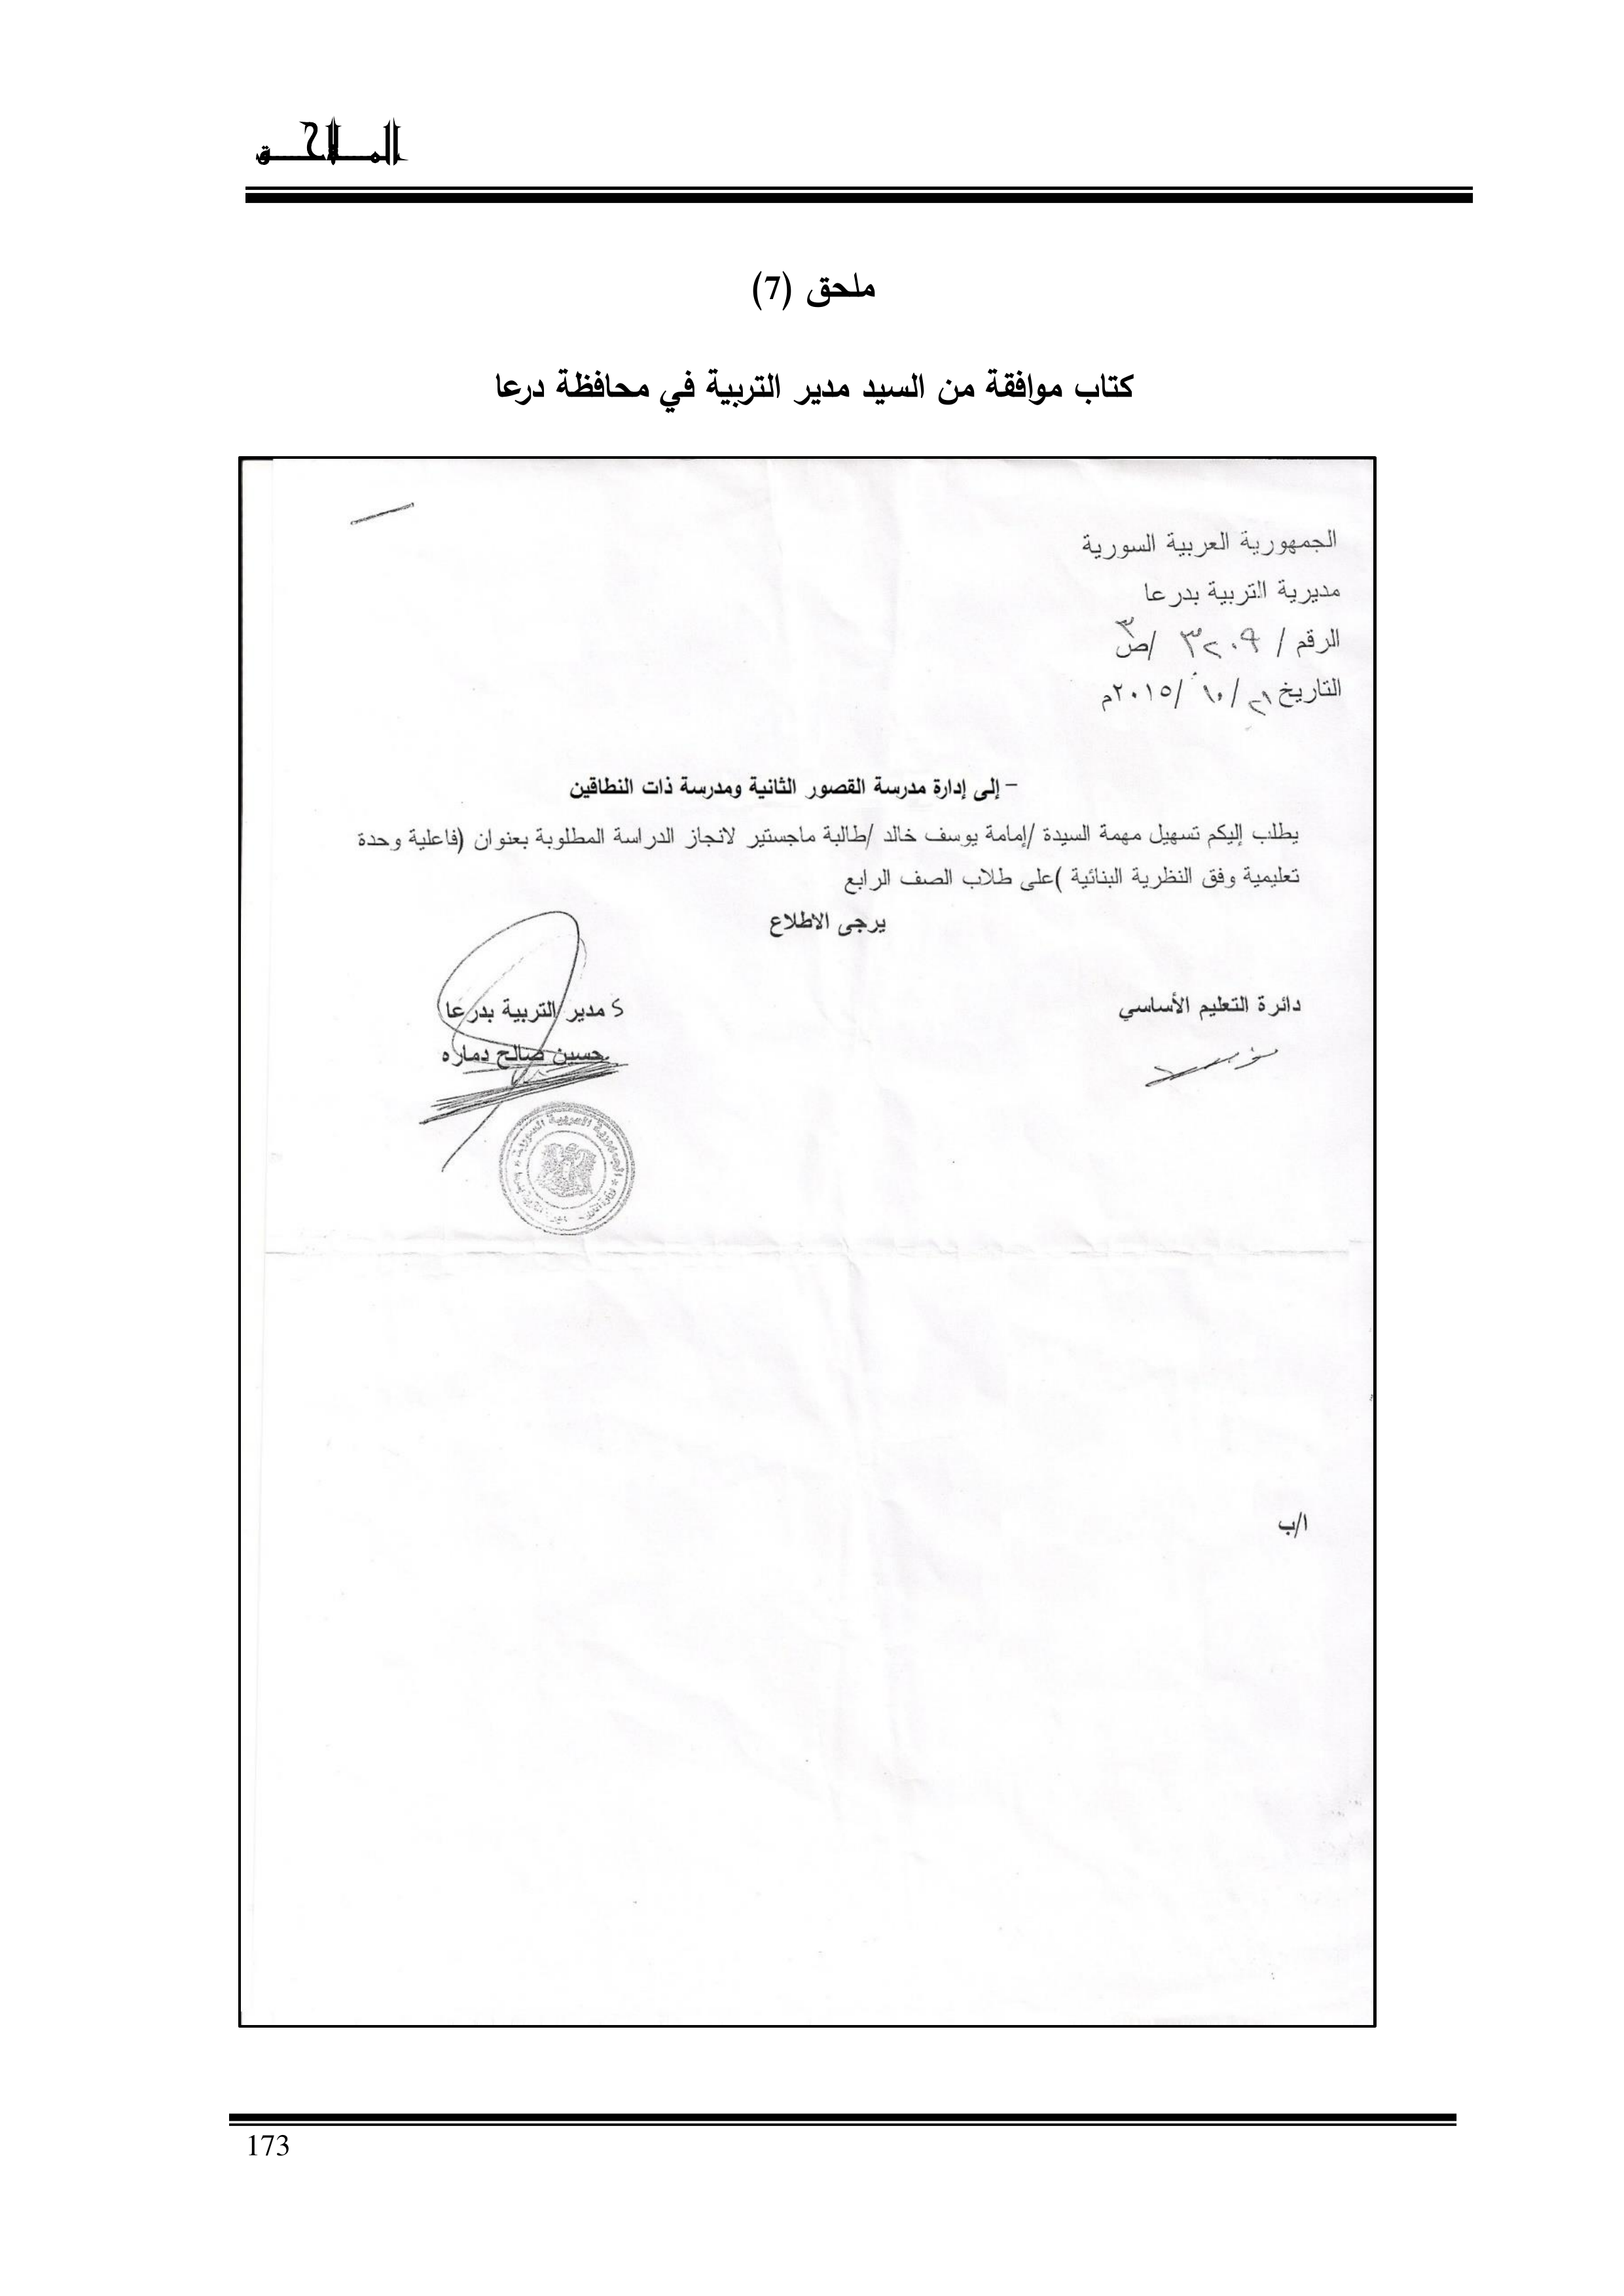 الملاحق
ملحق (7)
كتاب موافقة من السيد مدير التربية في محافظة درعا
الجمهورية العربية السورية
مديرية التربية بدرعا
الرقم / ٣٢٠٩ /ص ٣
التاريخ ٢١/ ١٠ /٢٠١٥م
– إلى إدارة مدرسة القصور الثانية ومدرسة ذات النطاقين
يطلب إليكم تسهيل مهمة السيدة /إمامة يوسف خالد /طالبة ماجستير لانجاز الدراسة المطلوبة بعنوان (فاعلية وحدة
تعليمية وفق النظرية البنائية )على طلاب الصف الرابع
يرجى الاطلاع
دائرة التعليم الأساسي
مدير التربية بدرعا
حسين صالح دماره
الجمهورية العربية السورية
ا/ب
173